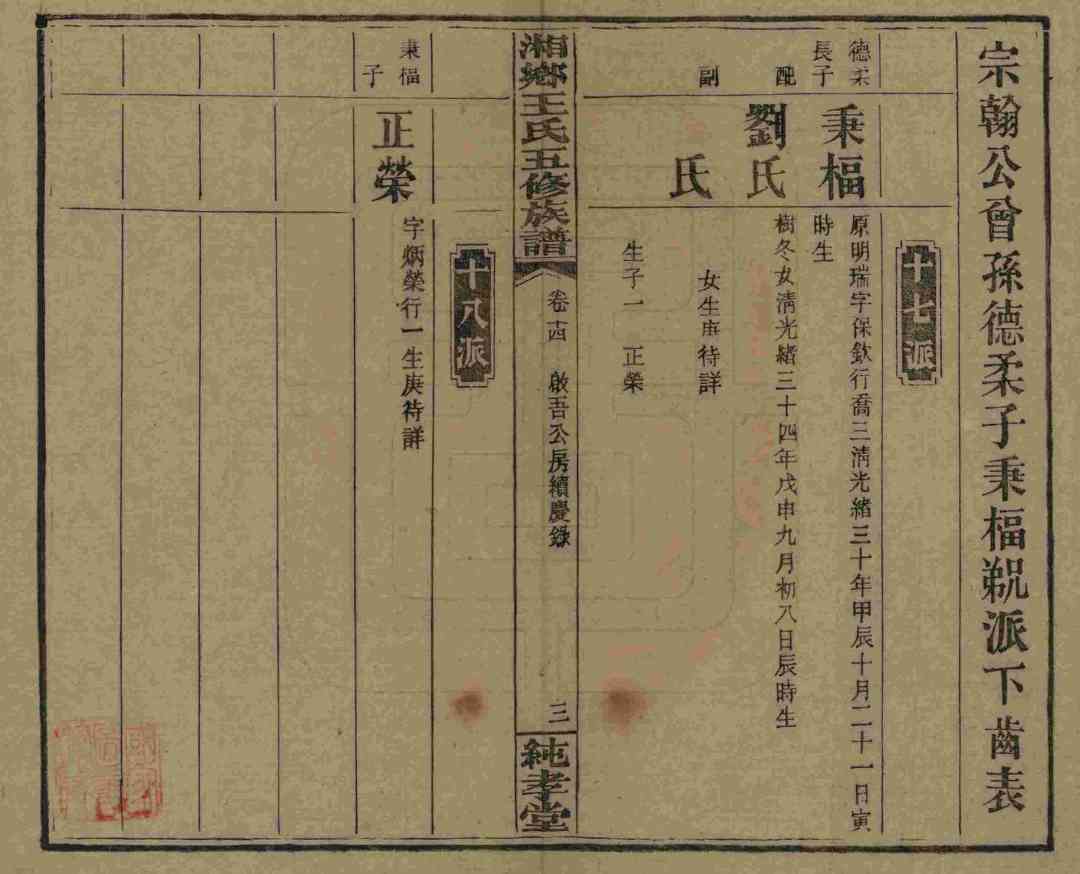 宗翰公曾孫德柔子秉楅派下齒表
十七派
德柔長子
秉楅
原明瑞字保欽行喬三清光緒三十年甲辰十月二十一日寅
時生
配
劉氏
樹冬女清光緒三十四年戊申九月初八日辰時生
副
氏
女生庚待詳
生子一 正榮
湘鄉王氏五修族譜
卷十四 啟吾公房續慶錄
三
純孝堂
十八派
秉楅子
正榮
字炳榮行一生庚待詳